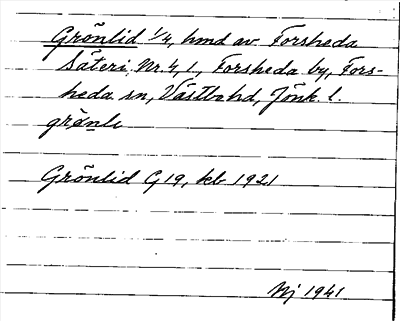 Grönlid 1/4, hmd av Forsheda
Säteri Nr. 4, 1., Forsheda by, Fors-
heda sn, Västbo hd, Jönk. l.
Grönlid G 19, kb 1921
Nj 1941